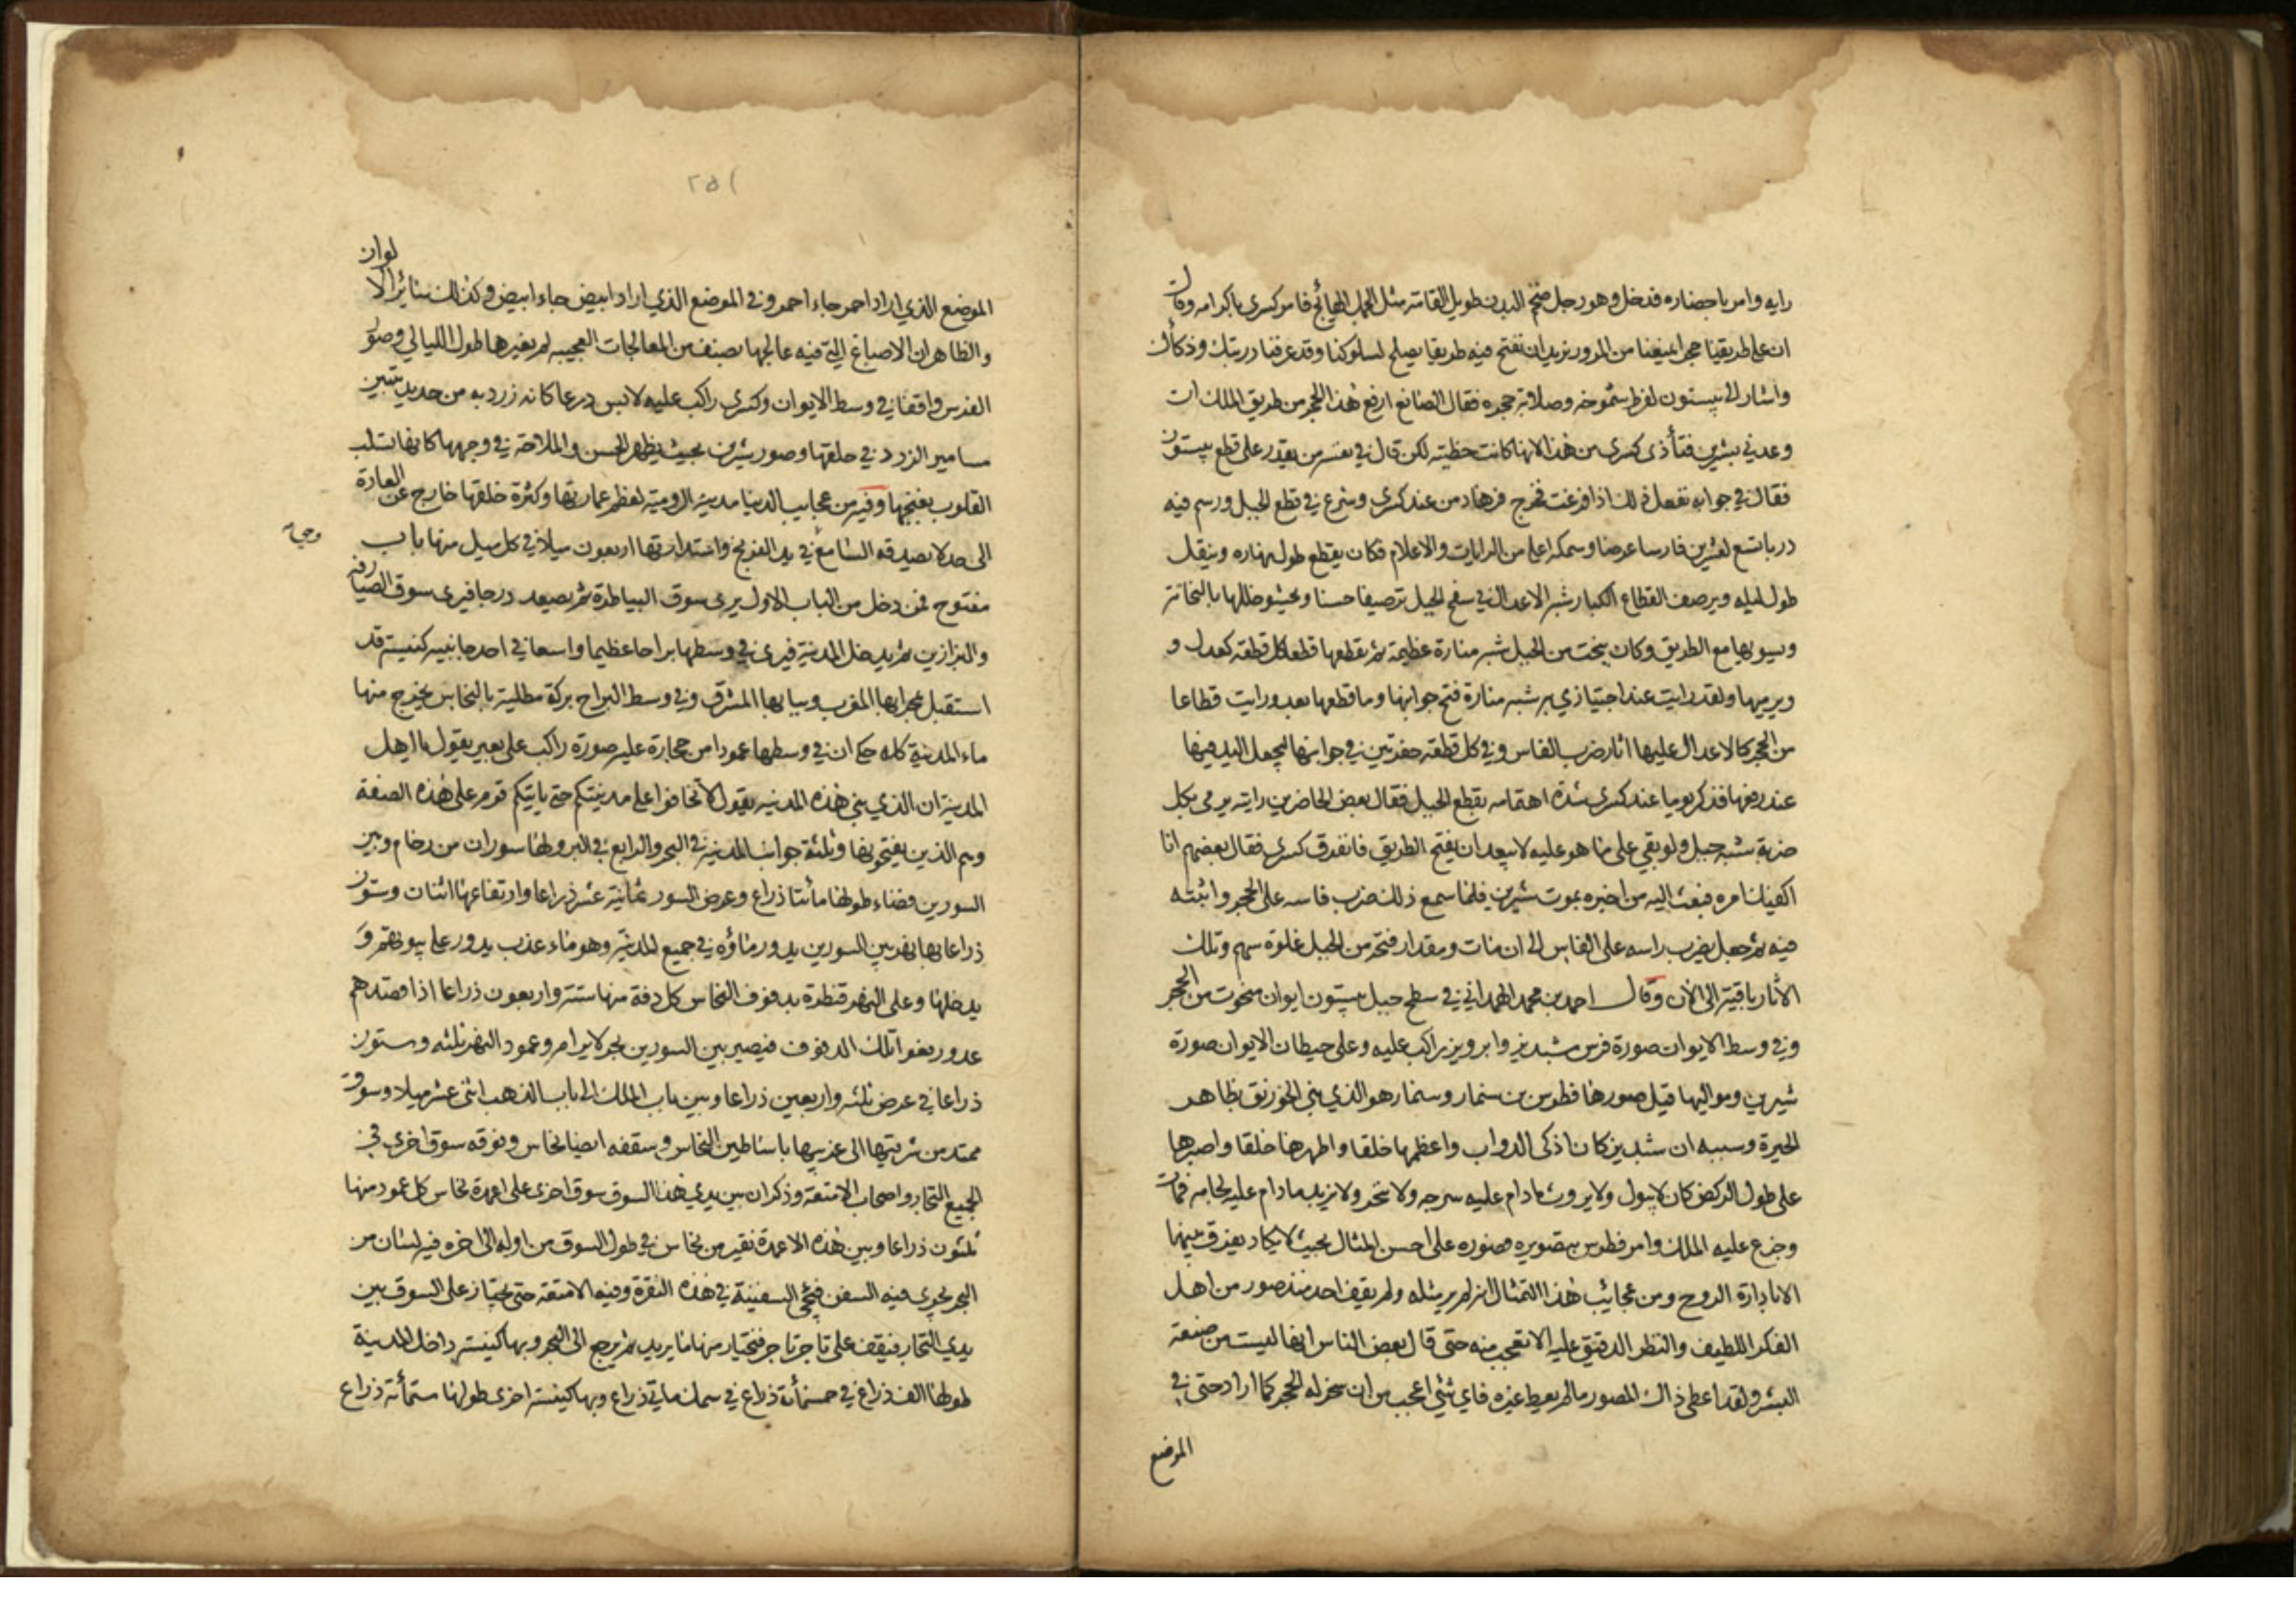 رايه وامر باحضاره فدخل وهو رجل ضخم البدن طويل القامة مثل الجمل الهائج فامر كسرى باكرامه وقال
ان على طريقنا حجرا يمنعنا من المرور نريد ان تفتح فيه طريقا يصلح لسلوكنا وقد عرفنا دربتك وذكاك
واشار الى بيستون لفرط شموخه وصلابة حجره فقال الصانع ارفع هذا الحجر من طريق الملك ان
وعدني بشيرين فتأذى كسرى من هذا لانها كانت حظيته لكن قال في نفسه من يقدر على قطع بيستون
فقال في جوابه نفعل ذلك اذا فرغت فخرج فرهاد من عند كسرى وشرع في قطع الجبل ورسم فيه
دربا تسع لعشرين فارسا عرضا وسمكه اعلى من الرايات والاعلام فكان يقطع طول نهاره وينقل
طول ليله ويرصف القطاع الكبار شبه الاعدال في سفح الجبل ترصيفا حسنا ويحشو خللها بالنحاتة
ويسويها مع الطريق وكان ينحت من الجبل شبه منارة عظيمة ثم يقطعها قطعا كل قطعة كعدل و
ويرميها ولقد رايت عند اجتيازي به شبه منارة فتح جوانبها وما قطعها بعد ورايت قطاعا
من الحجر كالاعدال عليها اثار ضرب الفاس وفي كل قطعة حفرتين في جوانبها ليجعل اليد فيها
عند رفعها فذكر يوما عند كسرى شدة اهتمامه بقطع الجبل فقال بعض الحاضرين رايته يرمى بكل
ضربة شبه جبل ولو بقي على ما هو عليه لا يبعد ان يفتح الطريق فانفرق كسرى فقال بعضهم انا
اكفيك امره فبعث اليه من اخبره بموت شيرين فلما سمع ذلك ضرب فاسه على الحجر واثبته
فيه ثم جعل يضرب راسه على الفاس الى ان مات ومقدار فتحه من الجبل غلوة سهم وتلك
الاثار باقية الى الآن وقال احمد بن محمد الهمداني في سطح جبل بيستون ايوان منحوت من الحجر
وفي وسط الايوان صورة فرس شبديز وابرويز راكب عليه وعلى حيطان الايوان صورة
شيرين ومواليها قيل صورها فطوس بن سنمار وسنمار هو الذي بنى الخورنق بظاهر
الحيرة وسببه ان شبديز كان اذكى الدواب واعظمها خلقا واظهرها خلقا واصبرها
على طول الركض كان لا يبول ولا يروث ما دام عليه سرجه ولا ينخر ولا يزبد ما دام عليه لجامه فمات
وجزع عليه الملك وامر فطوس بتصويره فصوره على احسن المثال بحيث لا يكاد يفرق بينهما
الا بادارة الروح ومن عجائب هذا التمثال انه لم ير مثله ولم يقف احد منذ صور من اهل
الفكر اللطيف والنظر الدقيق عليه الا تعجب منه حتى قال بعض الناس انها ليست من صنعة
البشر ولقد اعطى ذاك المصور ما لم يعط غيره فاى شئ اعجب من ان سخر له الحجر كما اراد حتى في
الموضع
٢٥١
لوان
الموضع الذي اراد احمر جاء احمر وفي الموضع الذي اراد ابيض جاء ابيض وكذلك سائر الا
والظاهر ان الاصباغ التي فيه عالجها بصنف من المعالجات العجيبه لم يغيرها طول الليالي وصور
الفرس واقفا في وسط الايوان وكسرى راكب عليه لابس درعا كانه زرد به من حديد يتبين
مسامير الزرد في حلقها وصور شيرين بحيث يظهر الحسن والملاحة في وجهها كانها تسلب
القلوب بغنجها وفيه من عجايب الدنيا مدينة الرومية لعظم عمارتها وكثرة خلقها خارج عن العادة
الى حد لا يصدقه السامع في يد الفرنج واستدارتها اربعون ميلا في كل ميل منها باب
مفتوح فمن دخل من الباب الاول يرى سوق البياطرة ثم يصعد درجا فيرى سوق الصيارفة
والبزازين ثم يدخل المدينة فيرى في وسطها براحا عظيما واسعا في احد جانبيه كنيسة قد
استقبل بمحرابها المغرب وببابها المشرق وفي وسط البراح بركة مطلية بالنحاس يخرج منها
ماء المدينة كله حكى ان في وسطها عمودا من حجارة عليه صورة راكب على بعير يقول يا اهل
المدينة ان الذي بنى هذه المدينة يقول لا تخافوا على مدينتكم حتى ياتيكم قوم على هذه الصفة
وهم الذين يفتحونها وثلثة جوانب المدينة في البحر والرابع في البر ولها سوران من رخام وبين
السورين فضاء طولها مائتا ذراع وعرض السور ثمانية عشر ذراعا وارتفاعها اثنان وستون
ذراعا بها نهر بين السورين يدور ماؤه في جميع المدينة وهو ماء عذب يدور على بيوتهم و
يدخلها وعلى النهر قنطرة بدفوف النحاس كل دفة منها ستة واربعون ذراعا اذا قصدهم
عدو رفعوا تلك الدفوف فيصير بين السورين بحر لا يرام وعمود النهر ثلثه وستون
ذراعا في عرض ثلثه واربعين ذراعا وبين باب الملك الى باب الذهب اثنى عشر ميلا وسوق
ممتد من شرقيتها الى غربيها باساطين النحاس وسقفه ايضا نحاس وفوقه سوق اخرى في
الجميع التجار واصحاب الامتعة وذكر ان بين يدي هذا السوق سوق اخرى على اعمدة نحاس كل عمود منها
ثلثون ذراعا وبين هذه الاعمدة نقير من نحاس في طول السوق من اوله الى اخره فيه لسان من
البحر يجرى فيه السفن فتجئ السفينة في هذه النقرة وفيه الامتعة حتى تجتاز على السوق بين
يدي التجار فتقف على تاجر تاجر فتختار منها ما يريد ثم يرجع الى البحر وبها كنيسة داخل المدينة
طولها الف ذراع في خمسمأة ذراع في سمك ماتي ذراع وبها كنيسة اخرى طولها ستمأة ذراع